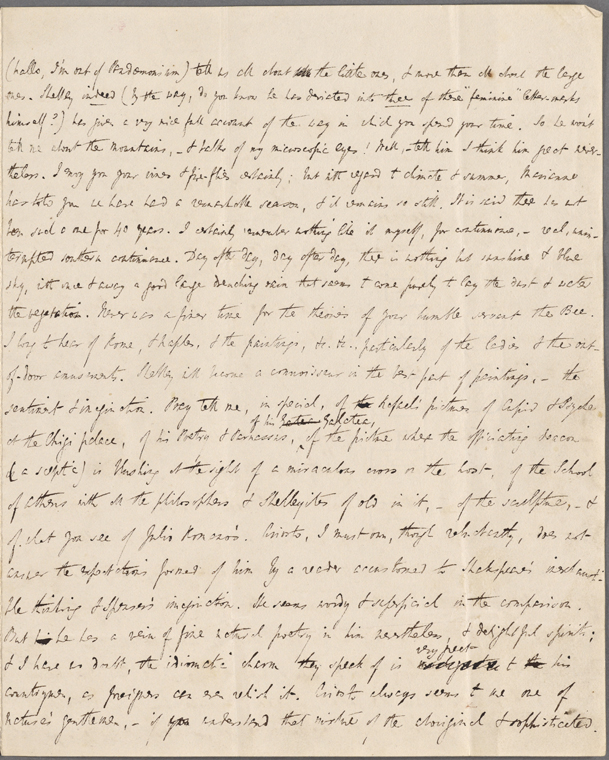 (hallo, I'm out of Pandemonium) tell us all about the little ones, & more than all about the large
ones. Shelley indeed (by the way, do you know he has deviated into three of these "feminine" letter-marks
himself?) has given a very nice full account of the way in which you spend your time. So he won't
tell me about the mountains, – & talks of my microscopic eyes! Well, – tell him I think him great never-
theless. I envy you your vines & fire-flies certainly; but with regard to climate & summer, Marianne
has told you we have had a remarkable season, & it remains so still. It is said there has not
been such a one for 40 years. I certainly remember nothing like it myself, for continuance, – real, unin-
terrupted southern continuance. Day after day, day after day, there is nothing but sunshine & blue
sky, with once & away a good large drenching rain that seems to come purely to lay the dust & water
the vegetation. Never was a finer time for the thieveries of your humble servant the Bee.
I long to hear of Rome, & Naples, & the paintings, &c. &c., particularly of the ladies & the out-
of-door amusements. Shelley will become a connoisseur in the best part of paintings, – the
sentiment & imagination. Pray tell me, in special, of Rafael's pictures of Cupid & Psyche
at the Chigi palace, of his Galatea, of his Poetry & Parnassus, of the picture where the officiating deacon
(a sceptic) is blushing at the sight of a miraculous cross on the host, of the School
of Athens with all the philosophers & Shelleyites of old in it, – of the sculpture, – &
of what you see of Julio Romano's. Ariosto, I must own, though reluctantly, does not
answer the expectations formed of him by a reader accustomed to Shakspeare's inexhausti-
ble thinking & Spenser's imagination. He seems wordy & superficial in the comparison.
But he has a vein of fine natural poetry in him nevertheless, & delightful spirits;
& I have no doubt, the idiomatic charm they speak of is very great to his
countrymen, as foreigners can even relish it. Ariosto always seems to me one of
nature's gentlemen, – if you understand that mixture of the aboriginal & sophisticated.